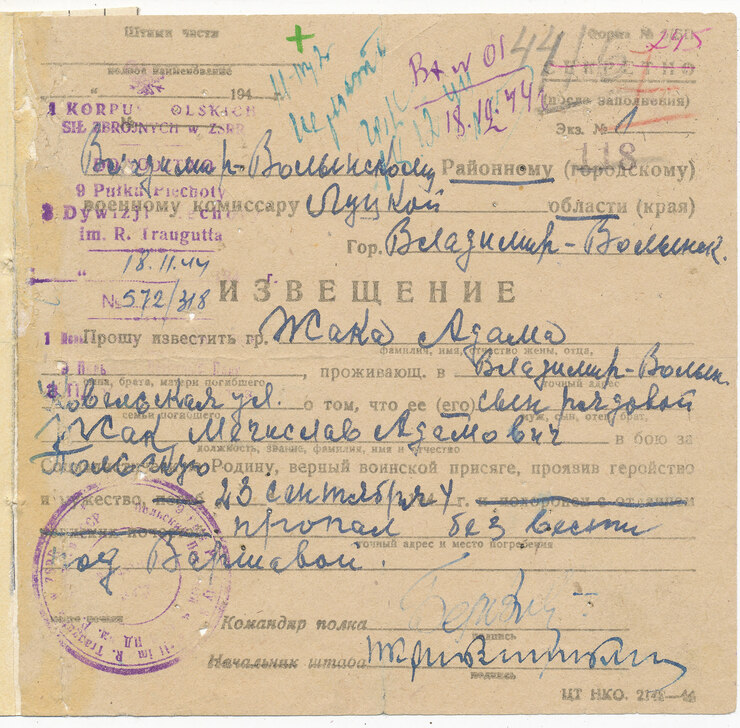 Штамп части
Форма №
полное наименование
194
Вх № 01
245
СЕКРЕТНО
(после заполнения)
18.12.44
Экз. № 1
118
1 KORPUS POLSKICH
SIŁ ZBROJNYCH w ZSRR
Владимир-Волынскому Районному (городскому)
9 Pułku Piechoty
военному комиссару Луцкой области (края)
3 Dywizji Piechoty
im. R. Traugutta
Гор. Владимир-Волынск.
18.11.44 г.
№ 572/318
ИЗВЕЩЕНИЕ
Прошу известить гр. Жака Адама
фамилия, имя, отчество жены, отца,
проживающ. в Владимир-Волын.
сына, брата, матери погибшего
точный адрес
Ковельская ул. о том, что ее (его) сын рядовой
семьи погибшего
муж, сын, отец, брат,
Жак Мечислав Адамович в бою за
должность, звание, фамилия, имя и отчество
Польскую Родину, верный воинской присяге, проявив геройство
и мужество, 23 сентября 4 г. и похоронен с отданием
пропал без вести
под Варшавой.
точный адрес и место погребения
Командир полка
подпись
Начальник штаба
подпись
ЦТ НКО.